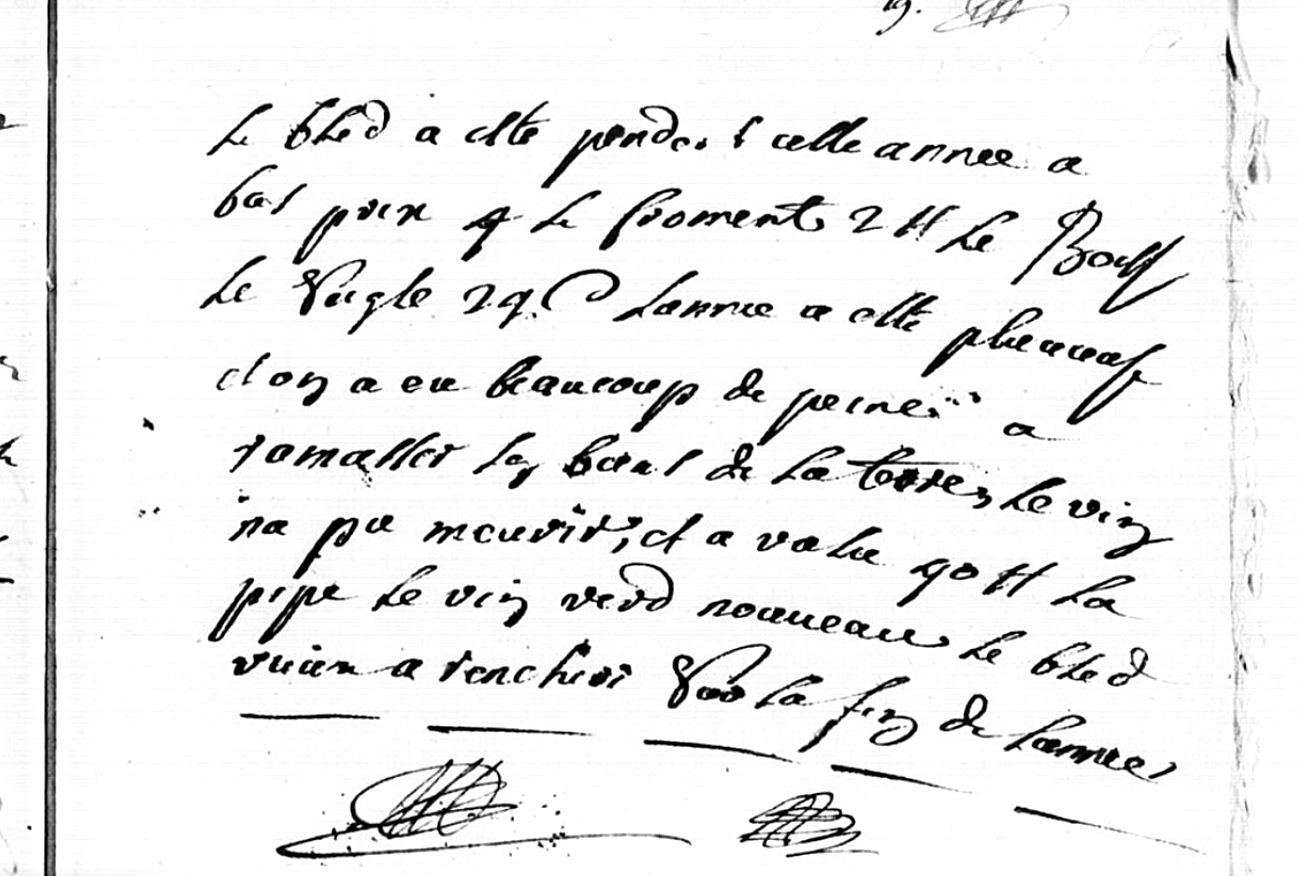 19.
Le bled a esté pendant celle annee a
bas prix le froment 2 ll le Boiss
Le seigle 29 s lannee a esté pluvieuse
et on a eu beaucoup de peine a
ramasser les biens de la terre, le vin
na pu meurir, et a valu 90 ll la
pipe le vin verd nouveau le bled
vieux a rencheri sur la fin de lannee